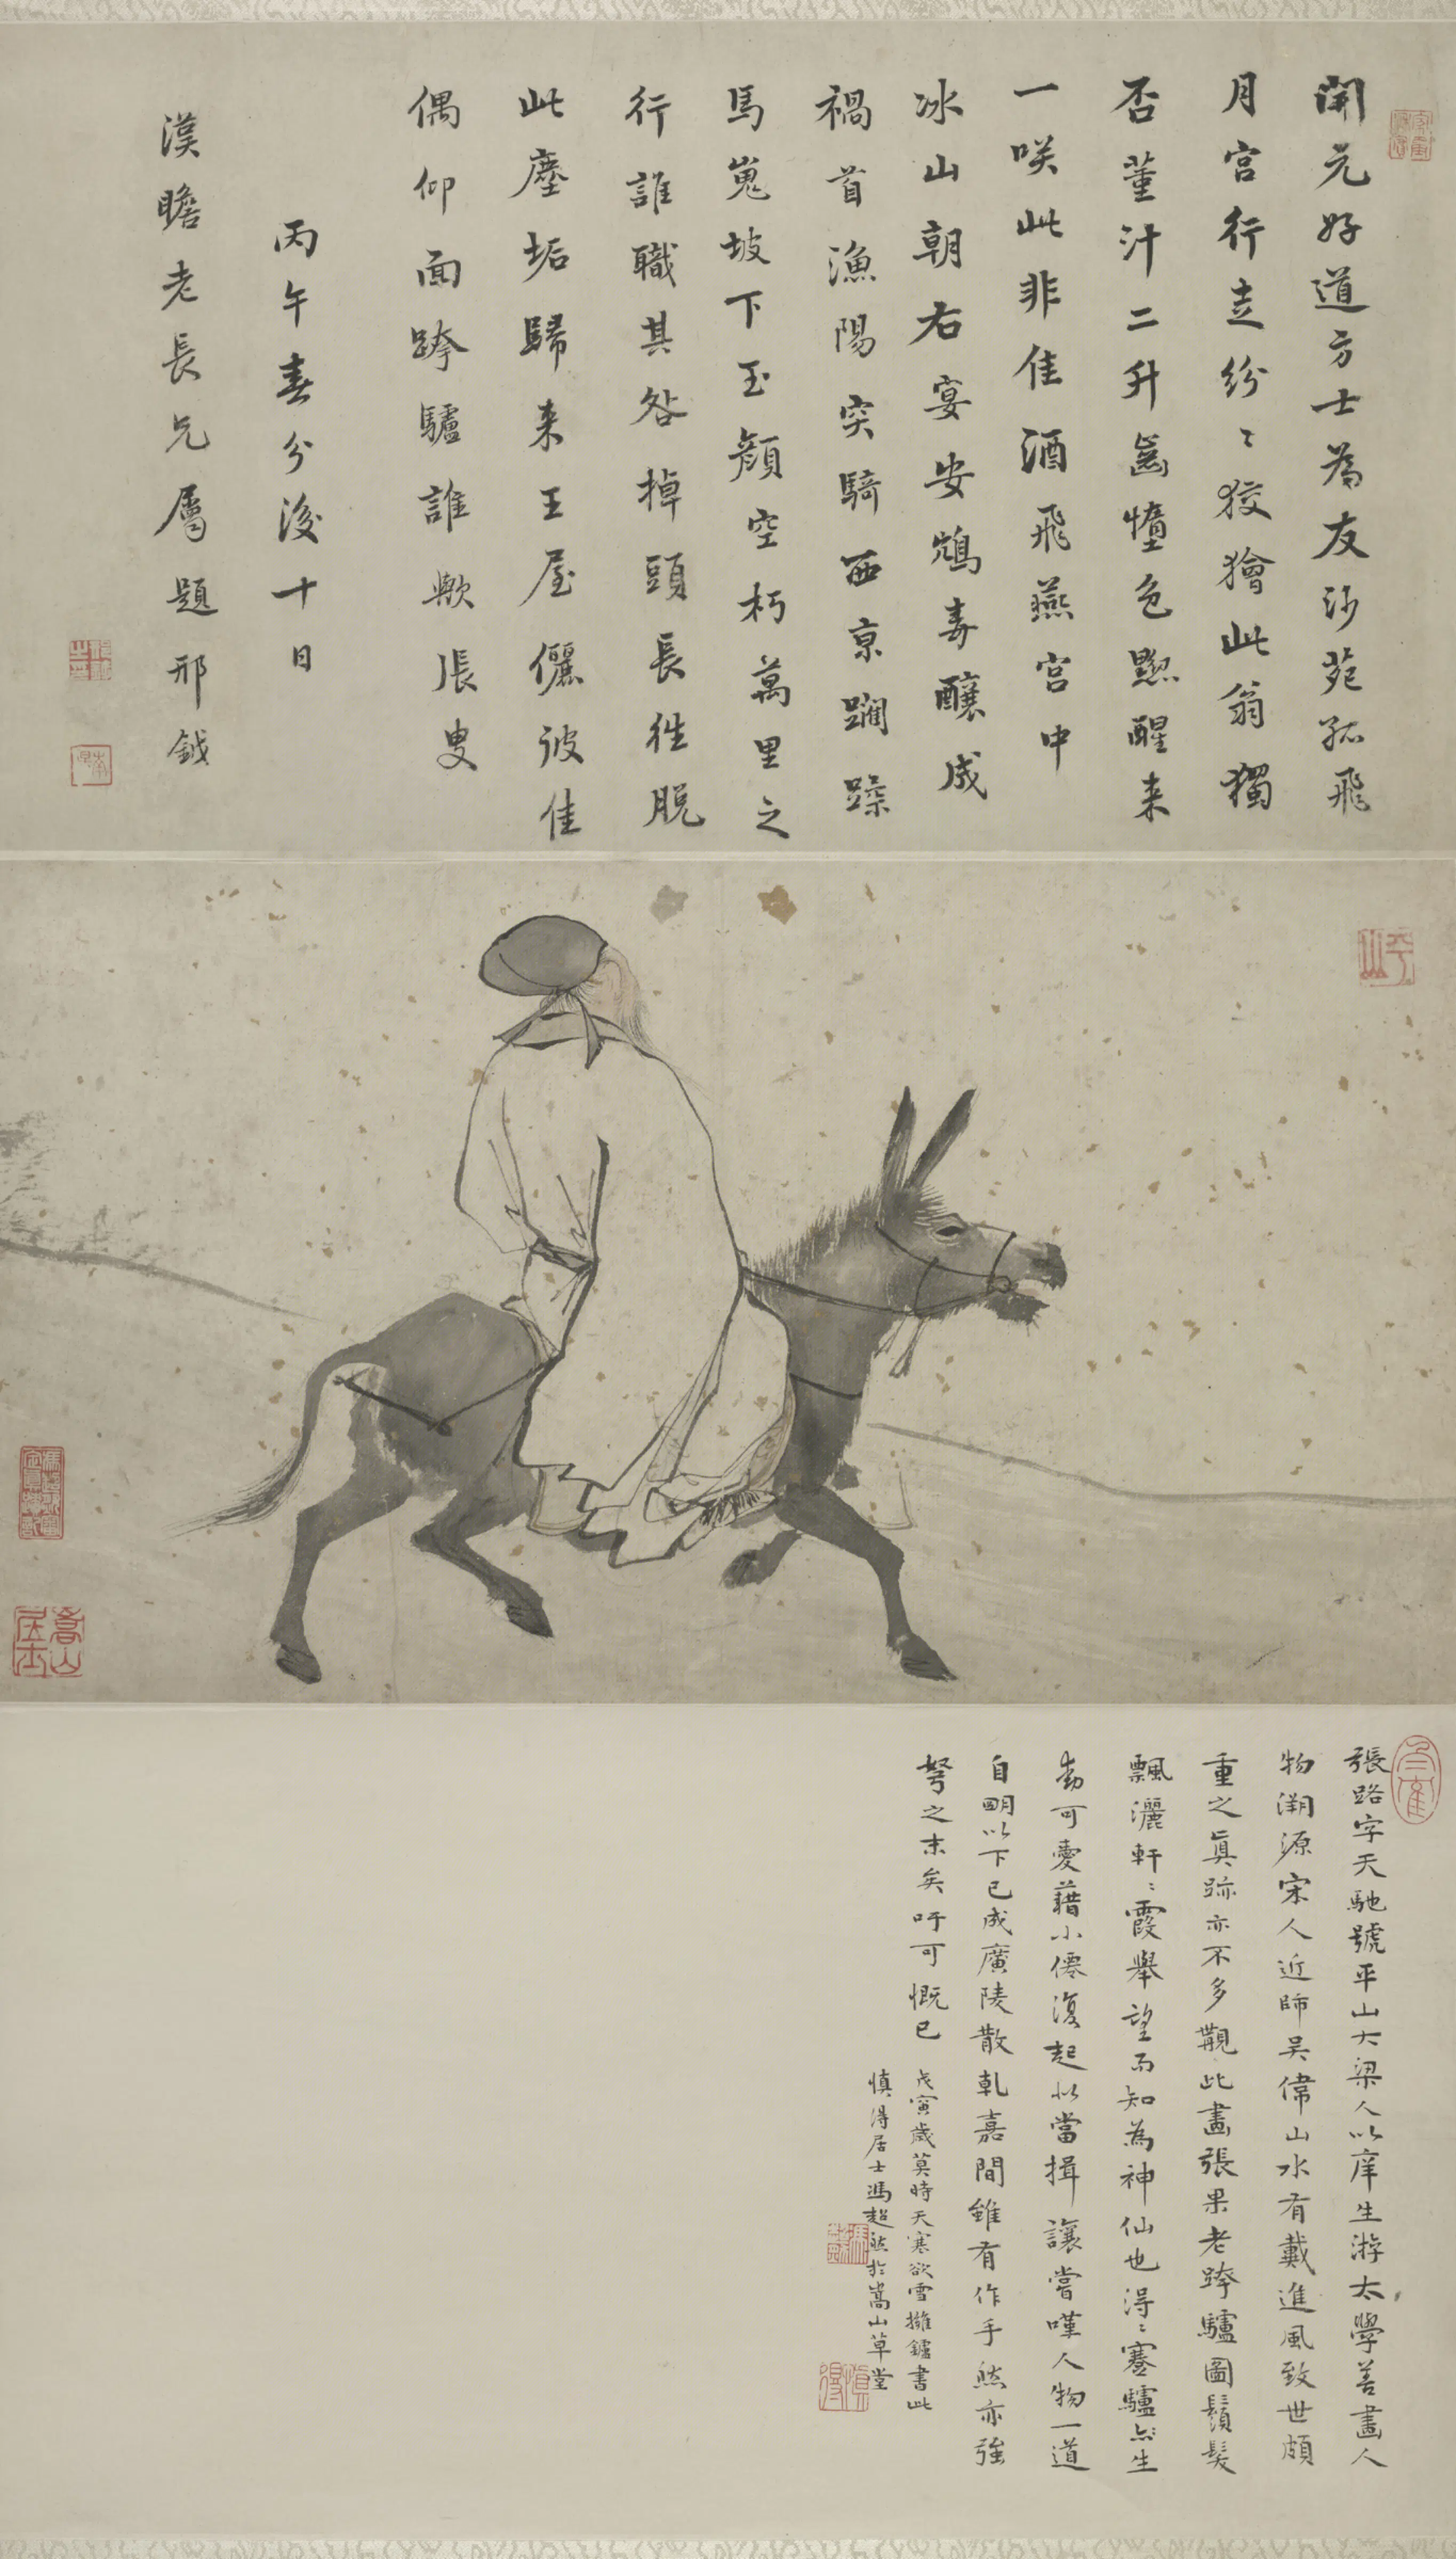 開元好道方士為友沙苑孤飛
月宮行走紛〻狡獪此翁獨
否菫汁二升齒墮色黑醒来
一咲此非佳酒飛燕宮中
冰山朝右宴安鴆毒釀成
禍首漁陽突騎西京躪躁
馬嵬坡下玉顏空朽萬里之
行誰職其咎掉頭長往脫
此塵垢歸来王屋儷彼佳
偶仰面跨驢誰歟張叟
丙午春分後十日
漢瞻老長兄屬題邢鉞
平山
嵩山居士
張路字天馳號平山大梁人以庠生游太學善畫人
物溯源宋人近師吳偉山水有戴進風致世頗
重之真跡亦不多覯此畫張果老跨驢圖鬚髮
飄灑軒〻霞舉望而知為神仙也得〻蹇驢亦生
動可愛藉小僊復起以當揖讓嘗嘆人物一道
自明以下已成廣陵散乹嘉間雖有作手然亦強
弩之末矣吁可慨已
戊寅歲莫時天寒欲雪擁鑪書此
慎得居士馮超然於嵩山草堂
慎得